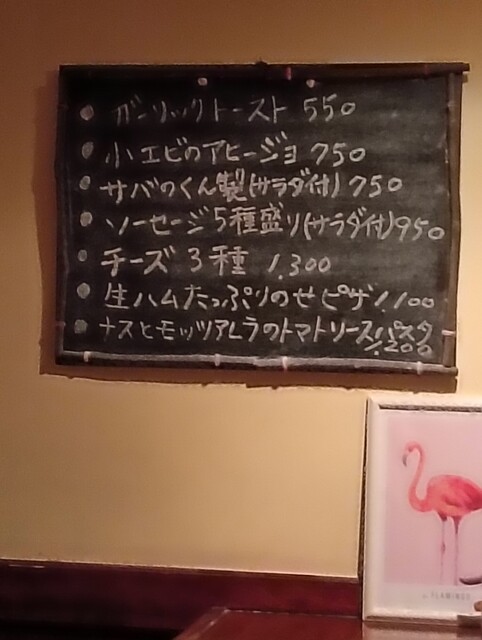 ガーリックトースト 550
小エビのアヒージョ 750
サバのくん製(サラダ付) 750
ソーセージ5種盛り(サラダ付)950
チーズ3種 1,300
生ハムたっぷりのせピザ1,100
ナスとモッツァレラのトマトソースパスタ
1,200
FLAMINGO